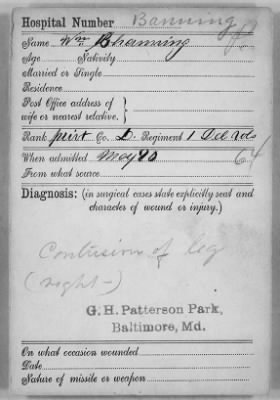 Hospital Number Banning
Name Wm Bhanning
Age Nativity
Married or Single
Residence
Post Office address of
wife or nearest relative.
Rank privt Co. D. Regiment 1 Del Vols
When admitted May 20 64
From what source
Diagnosis: (in surgical cases state explicitly seat and
character of wound or injury.)
Contusion of leg
(right-)
G. H. Patterson Park,
Baltimore, Md.
On what occasion wounded
Date
Nature of missile or weapon